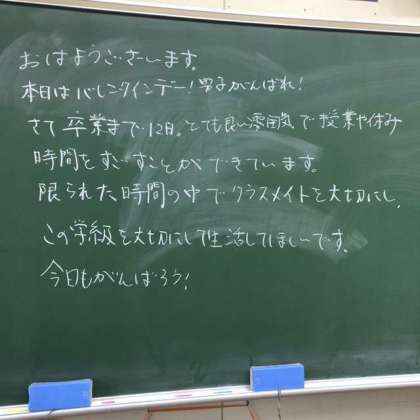 おはようございます。
本日はバレンタインデー!男子がんばれ!
さて卒業まで12日。とても良い雰囲気で授業や休み
時間をすごすことができています。
限られた時間の中でクラスメイトを大切にし、
この学級を大切にして生活してほしいです。
今日もがんばろう!